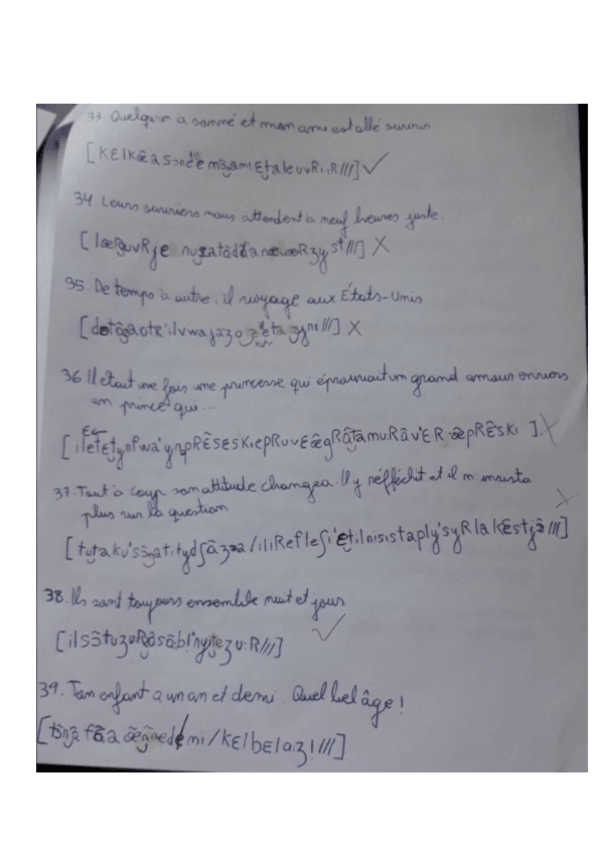 33. Quelqu'un a sonné et mon ami est allé ouvrir
[KɛlKœ̃a sone'e mɔ̃n‿amiɛt‿aleuvRiːR///] ✓
34. Leurs ouvriers nous attendent à neuf heures juste.
[lœRz‿uvRje nuz‿atɑ̃d ʒyst///] X
35. De temps à autre, il voyage aux États-Unis
[dətɑ̃zaotR'ilvwajaʒo zetazyni///] X
36. Il était une fois une princesse qui éprouvait un grand amour envers
un prince qui...
[ iletɛt‿ynfwa'ynpRɛ̃sɛsKiepRuvɛœ̃gRɑ̃t‿amuRɑ̃v'ɛR œ̃pRɛ̃'sKi ] X
37. Tout à coup son attitude changea. Il y réfléchit et il n'insista
plus sur la question
[tut‿aku'sɔ̃n‿atitydʃɑ̃ʒa/iliRefleʃi'et‿ilnisistaply'syRlakɛstjɔ̃///]
38. Ils sont toujours ensemble nuit et jour
[ilsɔ̃tuʒuRɑ̃sɑ̃bl'nɥiteʒuːR///] ✓
39. Ton enfant a un an et demi. Quel bel âge!
[tɔ̃n‿ɑ̃fɑ̃a œ̃n‿ɑ̃edəmi/Kɛlbɛlaːʒ!///]